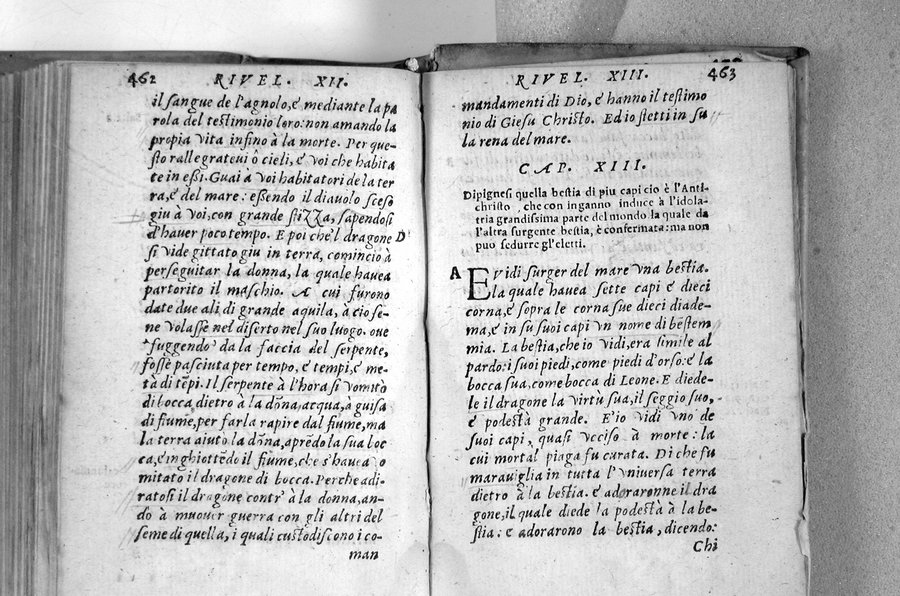 462 RIVEL. XII.
il sangue de l'agnolo, é mediante la pa
rola del testimonio loro: non amando la
propia vita infino à la morte. Per que-
sto rallegrateui ò cieli, é voi che habita
te in eßi. Guai a voi habitatori de la ter
ra, é del mare: eßendo il diauolo sceso
giu à voi, con grande stizza, sapendosi
d'hauer poco tempo. E poi che'l dragone D
si vide gittato giu in terra, cominciò à
perseguitar la donna, la quale hauea
partorito il maschio. A cui furono
date due ali di grande aquila, à cio se-
ne volasse nel diserto nel suo luogo. oue
fuggendo da la faccia del serpente,
fosse pasciuta per tempo, é tempi, é me-
tà di tēpi. Il serpente à l'hora si vomitò
di bocca dietro à la dōna, acqua, à guisa
di fiume, per farla rapire dal fiume, ma
la terra aiuto la dōna, apredo la sua boc
ca, é inghiottēdo il fiume, che s'hauea vo
mitato il dragone di bocca. Perche adi-
ratosi il dragone contr' à la donna, an-
dò à muouer guerra con gli altri del
seme di quella, i quali custodiscono i co-
man
RIVEL. XIII. 463
mandamenti di Dio, é hanno il testimo
nio di Giesu Christo. Ed io stetti in su
la rena del mare.
CAP. XIII.
Dipignesi quella bestia di piu capi cio è l'Anti-
christo, che con inganno induce à l'idola-
tria grandissima parte del mondo la quale da
l'altra surgente bestia, è confermata: ma non
puo sedurre gl'eletti.
A EVidi surger del mare vna bestia.
la quale hauea sette capi é dieci
corna, é sopra le corna sue dieci diade-
ma, é in su suoi capi vn nome di bestem
mia. La bestia, che io vidi, era simile al
pardo: i suoi piedi, come piedi d'orso: é la
bocca sua, come bocca di Leone. E diede-
le il dragone la virtu sua, il seggio suo,
é podestà grande. E io vidi vno de
suoi capi, quasi vcciso à morte: la
cui mortal piaga fu curata. Di che fu
marauiglia in tutta l'vniuersa terra
dietro à la bestia. é adoraronne il dra
gone, il quale diede la podestà à la be-
stia: é adorarono la bestia, dicendo:
Chi